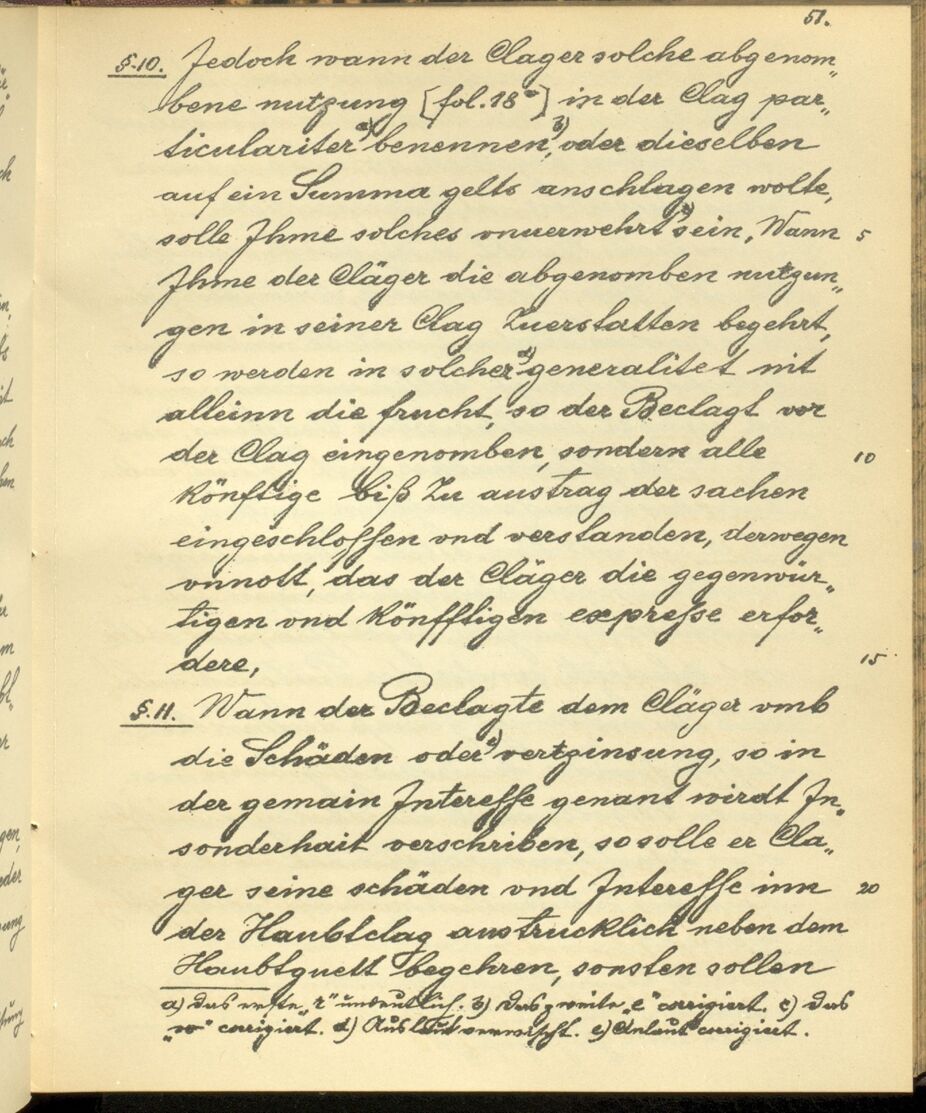 51.
§.10. Jedoch wann der Clager solche abgenom„
bene nutzung [fol. 18ª] in der Clag par„
ticulariterᵃ⁾ benennenᵇ⁾, oder dieselben
auf ein Summa gelts anschlagen wolte,
solle Ihme solches vnuerwehrtᶜ⁾ sein, Wann 5
Ihme der Cläger die abgenomben nutzun„
gen in seiner Clag Zuerstatten begehrt,
so werden in solcherᵈ⁾ generalitet nit
alleinn die frucht, so der Beclagt vor
der Clag eingenomben, sondern alle 10
könftige biß Zu austrag der sachen
eingeschlossen vnd verstanden, derwegen
vnnott, das der Cläger die gegenwür„
tigen vnd könfftigen expresse erfor„
dere, 15
§.11. Wann der Beclagte dem Cläger vmb
die Schäden oderᵉ⁾ vertzinsung, so in
der gemain Interesse genant wirdt In„
sonderhait verschriben, so solle er Cla„
ger seine schäden vnd Interesse inn 20
der Haubtclag austrucklich neben dem
Haubtguett begehren, sonsten sollen
a) das erste „r" undeutlich. b) das zweite „e" corrigiert. c) das
„w" corrigiert. d) Auslaut verwischt. e) Anlaut corrigiert.